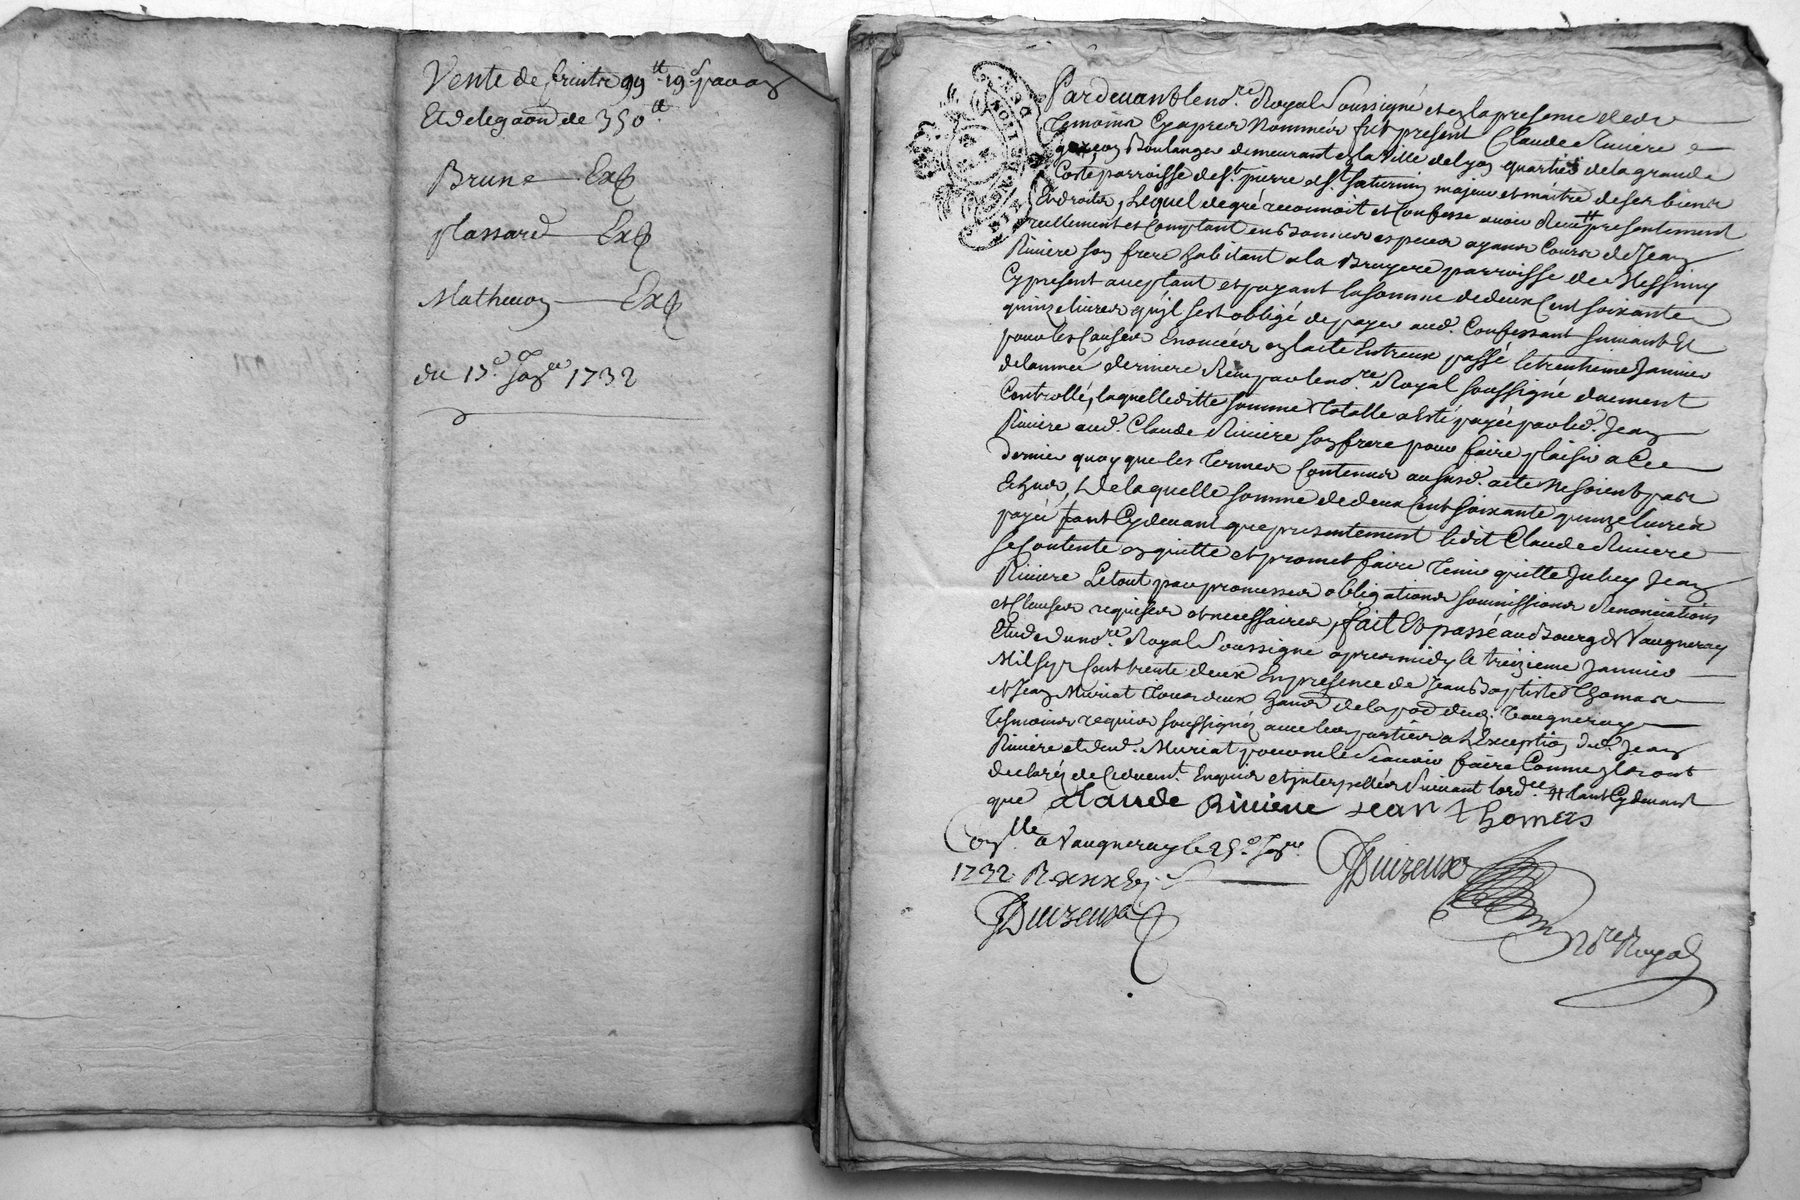 Vente de fruitre 99tt 19s
Et delegãon de 350tt
Brune Exp
plassard Exp
Mathieu Exp
du 13e Janer 1732
Pardevant le nore Royal Soussigné et en la presence des
temoins Cy apres Nommés fut present Claude Riviere
garçon Boulanger demeurant en la Ville de Lyon quartier de la grande
Coste parroisse de St pierre et St saturnin majeur et maitre de ses biens
Et droits, Lequel de gré reconnoit et Confesse avoir Receu tt presentement
reellement et Comptant en Bonnes especes ayant Cours de Jean
Riviere son frere habitant a la Bruyere parroisse de Messimy
Cy present aceptant et payant la somme de deux Cent soixante
quinze livres qu'jl s'est obligé de payer aud. Confessant suivant Et
pour les Causes Enoncées en l'acte Entreux passé le trentieme Janvier
de l'année derniere Receu par le nore Royal soussigné duement
Controllé, laquelle ditte somme totalle a Esté payée par led. Jean
Riviere aud. Claude Riviere son frere pour faire plaisir a Ce
dernier quoy que les termes Contenus au susd. acte ne soient pas
Echus, De laquelle somme de deux Cent soixante quinze livres
payée tant Cydevant que presentement ledit Claude Riviere
se Contente en quitte et promet faire tenir quitte Jceluy Jean
Riviere Le tout par promesses obligations soumissions Renonciations
et Clauses requises et necessaires, fait Et passé au Bourg de Vaugneray
Etude du nore Royal Soussigné apres midy le treizieme Janvier
Mil sept Cent trente deux En presence de Jean Baptiste Thomas
et Jean Muriat tous deux de la psse dud. Vaugneray
temoins requis soussignéz avec les parties a L'Exception dud. Jean
Riviere et dud. Muriat pour ne le Scavoir faire Comme jls ont
declaréz de Ce duemt. Enquis et jnterpellés Suivant l'ordce tt tant Cydevant
que Claude Riviere Jean Thomas
Conlle a Vaugneray le 25e Janer
1732.
JDuizeux
JDuizeux
Nore Royal